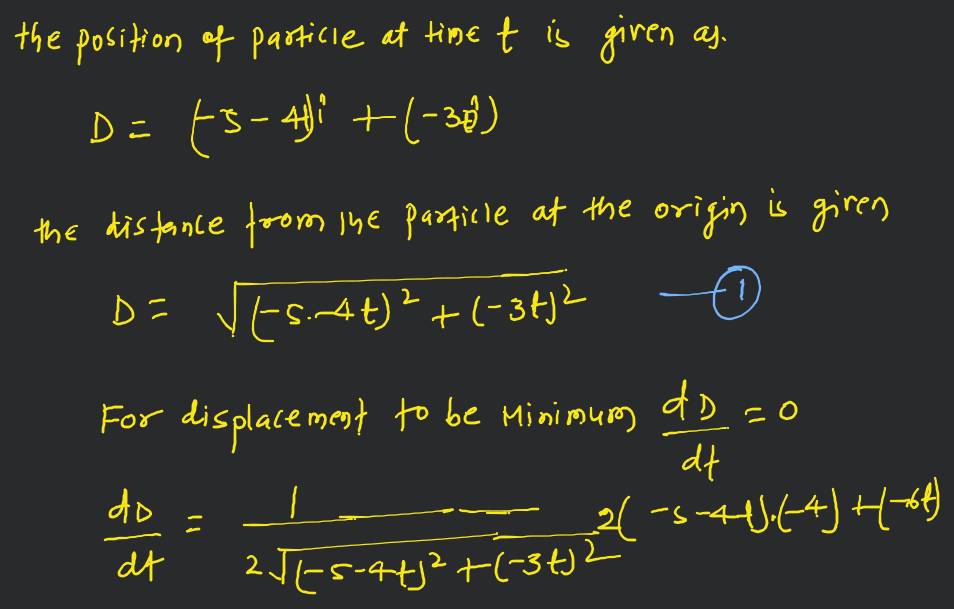 the position of particle at time t is given as.
D = (-5-4t)î + (-3tĵ)
the distance from the particle at the origin is given
D = √(-5-4t)² + (-3t)² —①
For displacement to be Minimum dD/dt = 0
dD/dt = 1/2√(-5-4t)²+(-3t)² 2(-5-4t).(-4)+(-6t)